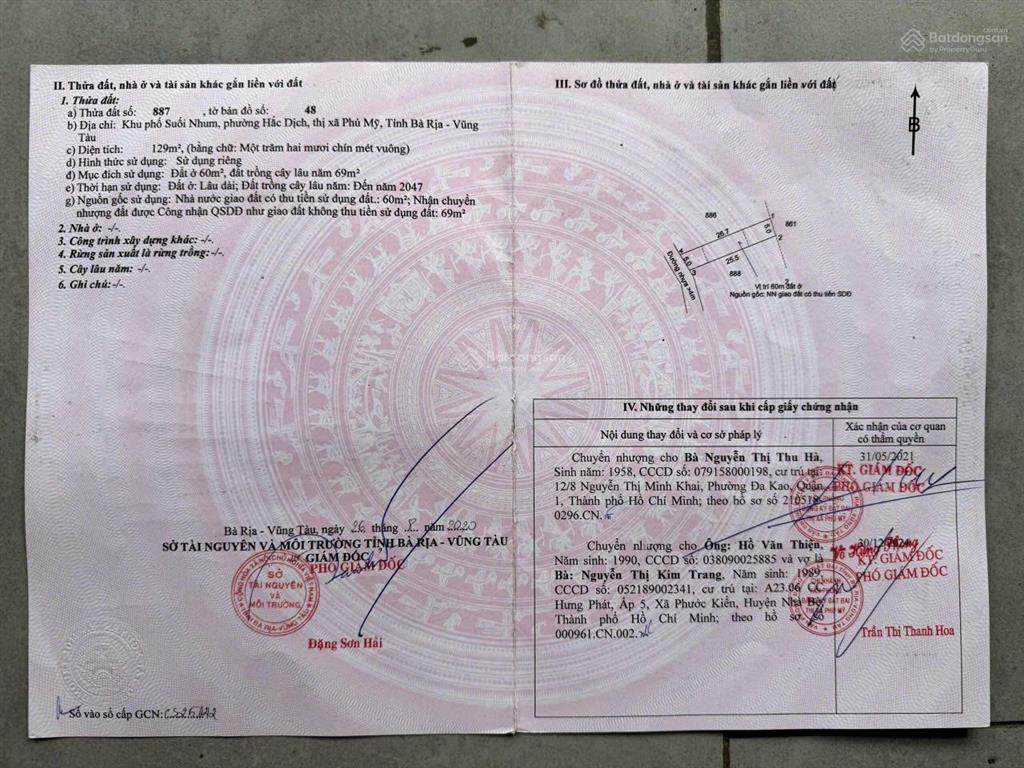 Batdongsan
.com.vn
by PropertyGuru
II. Thửa đất, nhà ở và tài sản khác gắn liền với đất
1. Thửa đất:
a) Thửa đất số: 887 , tờ bản đồ số: 48
b) Địa chỉ: Khu phố Suối Nhum, phường Hắc Dịch, thị xã Phú Mỹ, Tỉnh Bà Rịa - Vũng
Tàu
c) Diện tích: 129m², (bằng chữ: Một trăm hai mươi chín mét vuông)
d) Hình thức sử dụng: Sử dụng riêng
đ) Mục đích sử dụng: Đất ở 60m², đất trồng cây lâu năm 69m²
e) Thời hạn sử dụng: Đất ở: Lâu dài; Đất trồng cây lâu năm: Đến năm 2047
g) Nguồn gốc sử dụng: Nhà nước giao đất có thu tiền sử dụng đất.: 60m²; Nhận chuyển
nhượng đất được Công nhận QSDĐ như giao đất không thu tiền sử dụng đất: 69m²
2. Nhà ở: -/-.
3. Công trình xây dựng khác: -/-.
4. Rừng sản xuất là rừng trồng:-/-.
5. Cây lâu năm: -/-.
6. Ghi chú:-/-.
Bà Rịa - Vũng Tàu, ngày 26 tháng 8 năm 2020
SỞ TÀI NGUYÊN VÀ MÔI TRƯỜNG TỈNH BÀ RỊA - VŨNG TÀU
GIÁM ĐỐC
PHÓ GIÁM ĐỐC
SỞ
TÀI NGUYÊN
VÀ
MÔI TRƯỜNG
Đặng Sơn Hải
Số vào sổ cấp GCN:
III. Sơ đồ thửa đất, nhà ở và tài sản khác gắn liền với đất
B
886
1
861
26.7
5.0
2
5.0
3
25.5
888
2
Đường nhựa >4m
Vị trí 60m đất ở
Nguồn gốc: NN giao đất có thu tiền SDĐ
Batdongsan
IV. Những thay đổi sau khi cấp giấy chứng nhận
Nội dung thay đổi và cơ sở pháp lý
Xác nhận của cơ quan
có thẩm quyền
Chuyển nhượng cho Bà Nguyễn Thị Thu Hà,
Sinh năm: 1958, CCCD số: 079158000198, cư trú tại:
12/8 Nguyễn Thị Minh Khai, Phường Đa Kao, Quận
1, Thành phố Hồ Chí Minh; theo hồ sơ số 210518-
0296.CN.
31/05/2021
KT. GIÁM ĐỐC
PHÓ GIÁM ĐỐC
Chuyển nhượng cho Ông: Hồ Văn Thiện,
Năm sinh: 1990, CCCD số: 038090025885 và vợ là
Bà: Nguyễn Thị Kim Trang, Năm sinh: 1989,
CCCD số: 052189002341, cư trú tại: A23.06 CC
Hưng Phát, Ấp 5, Xã Phước Kiển, Huyện Nhà Bè,
Thành phố Hồ Chí Minh; theo hồ sơ số
000961.CN.002.
KT. GIÁM ĐỐC
PHÓ GIÁM ĐỐC
Trần Thị Thanh Hoa